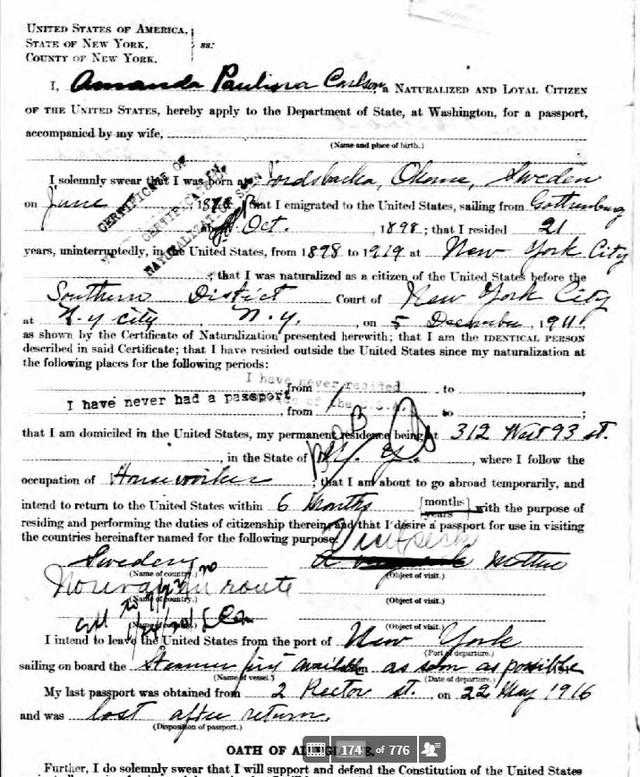 UNITED STATES OF AMERICA,
STATE OF NEW YORK,
COUNTY OF NEW YORK. ss:
I, Amanda Carlson, a NATURALIZED AND LOYAL CITIZEN
OF THE UNITED STATES, hereby apply to the Department of State, at Washington, for a passport,
accompanied by my wife,
(Name and place of birth.)
I solemnly swear that I was born at Sweden
on June , 187 ; that I emigrated to the United States, sailing from
Oct. , 1898; that I resided 21
years, uninterruptedly, in the United States, from 1898 to 1919 at New York City
; that I was naturalized as a citizen of the United States before the
Southern District Court of New York City
at N.Y. City N.Y., on 5 December, 1911.
as shown by the Certificate of Naturalization presented herewith; that I am the IDENTICAL PERSON
described in said Certificate; that I have resided outside the United States since my naturalization at
the following places for the following periods:
I have never resided
from to ;
I have never had a passport
, from to ;
that I am domiciled in the United States, my permanent residence being at 312 West 93 st.
, in the State of N.Y., where I follow the
occupation of Houseworker; that I am about to go abroad temporarily, and
intend to return to the United States within 6 Months [months/years] with the purpose of
residing and performing the duties of citizenship therein; and that I desire a passport for use in visiting
the countries hereinafter named for the following purpose:
Sweden Mother
(Name of country.) (Object of visit.)
en route
(Name of country.) (Object of visit.)
(Object of visit.)
I intend to leave the United States from the port of New York
(Port of departure.)
sailing on board the Steamer first available as soon as possible
(Name of vessel.) (Date of departure.)
My last passport was obtained from 2 Rector st. on 22 May 1916
and was lost after return.
(Disposition of passport.)
174 of 776
OATH OF ALLEGIANCE.
Further, I do solemnly swear that I will support and defend the Constitution of the United States